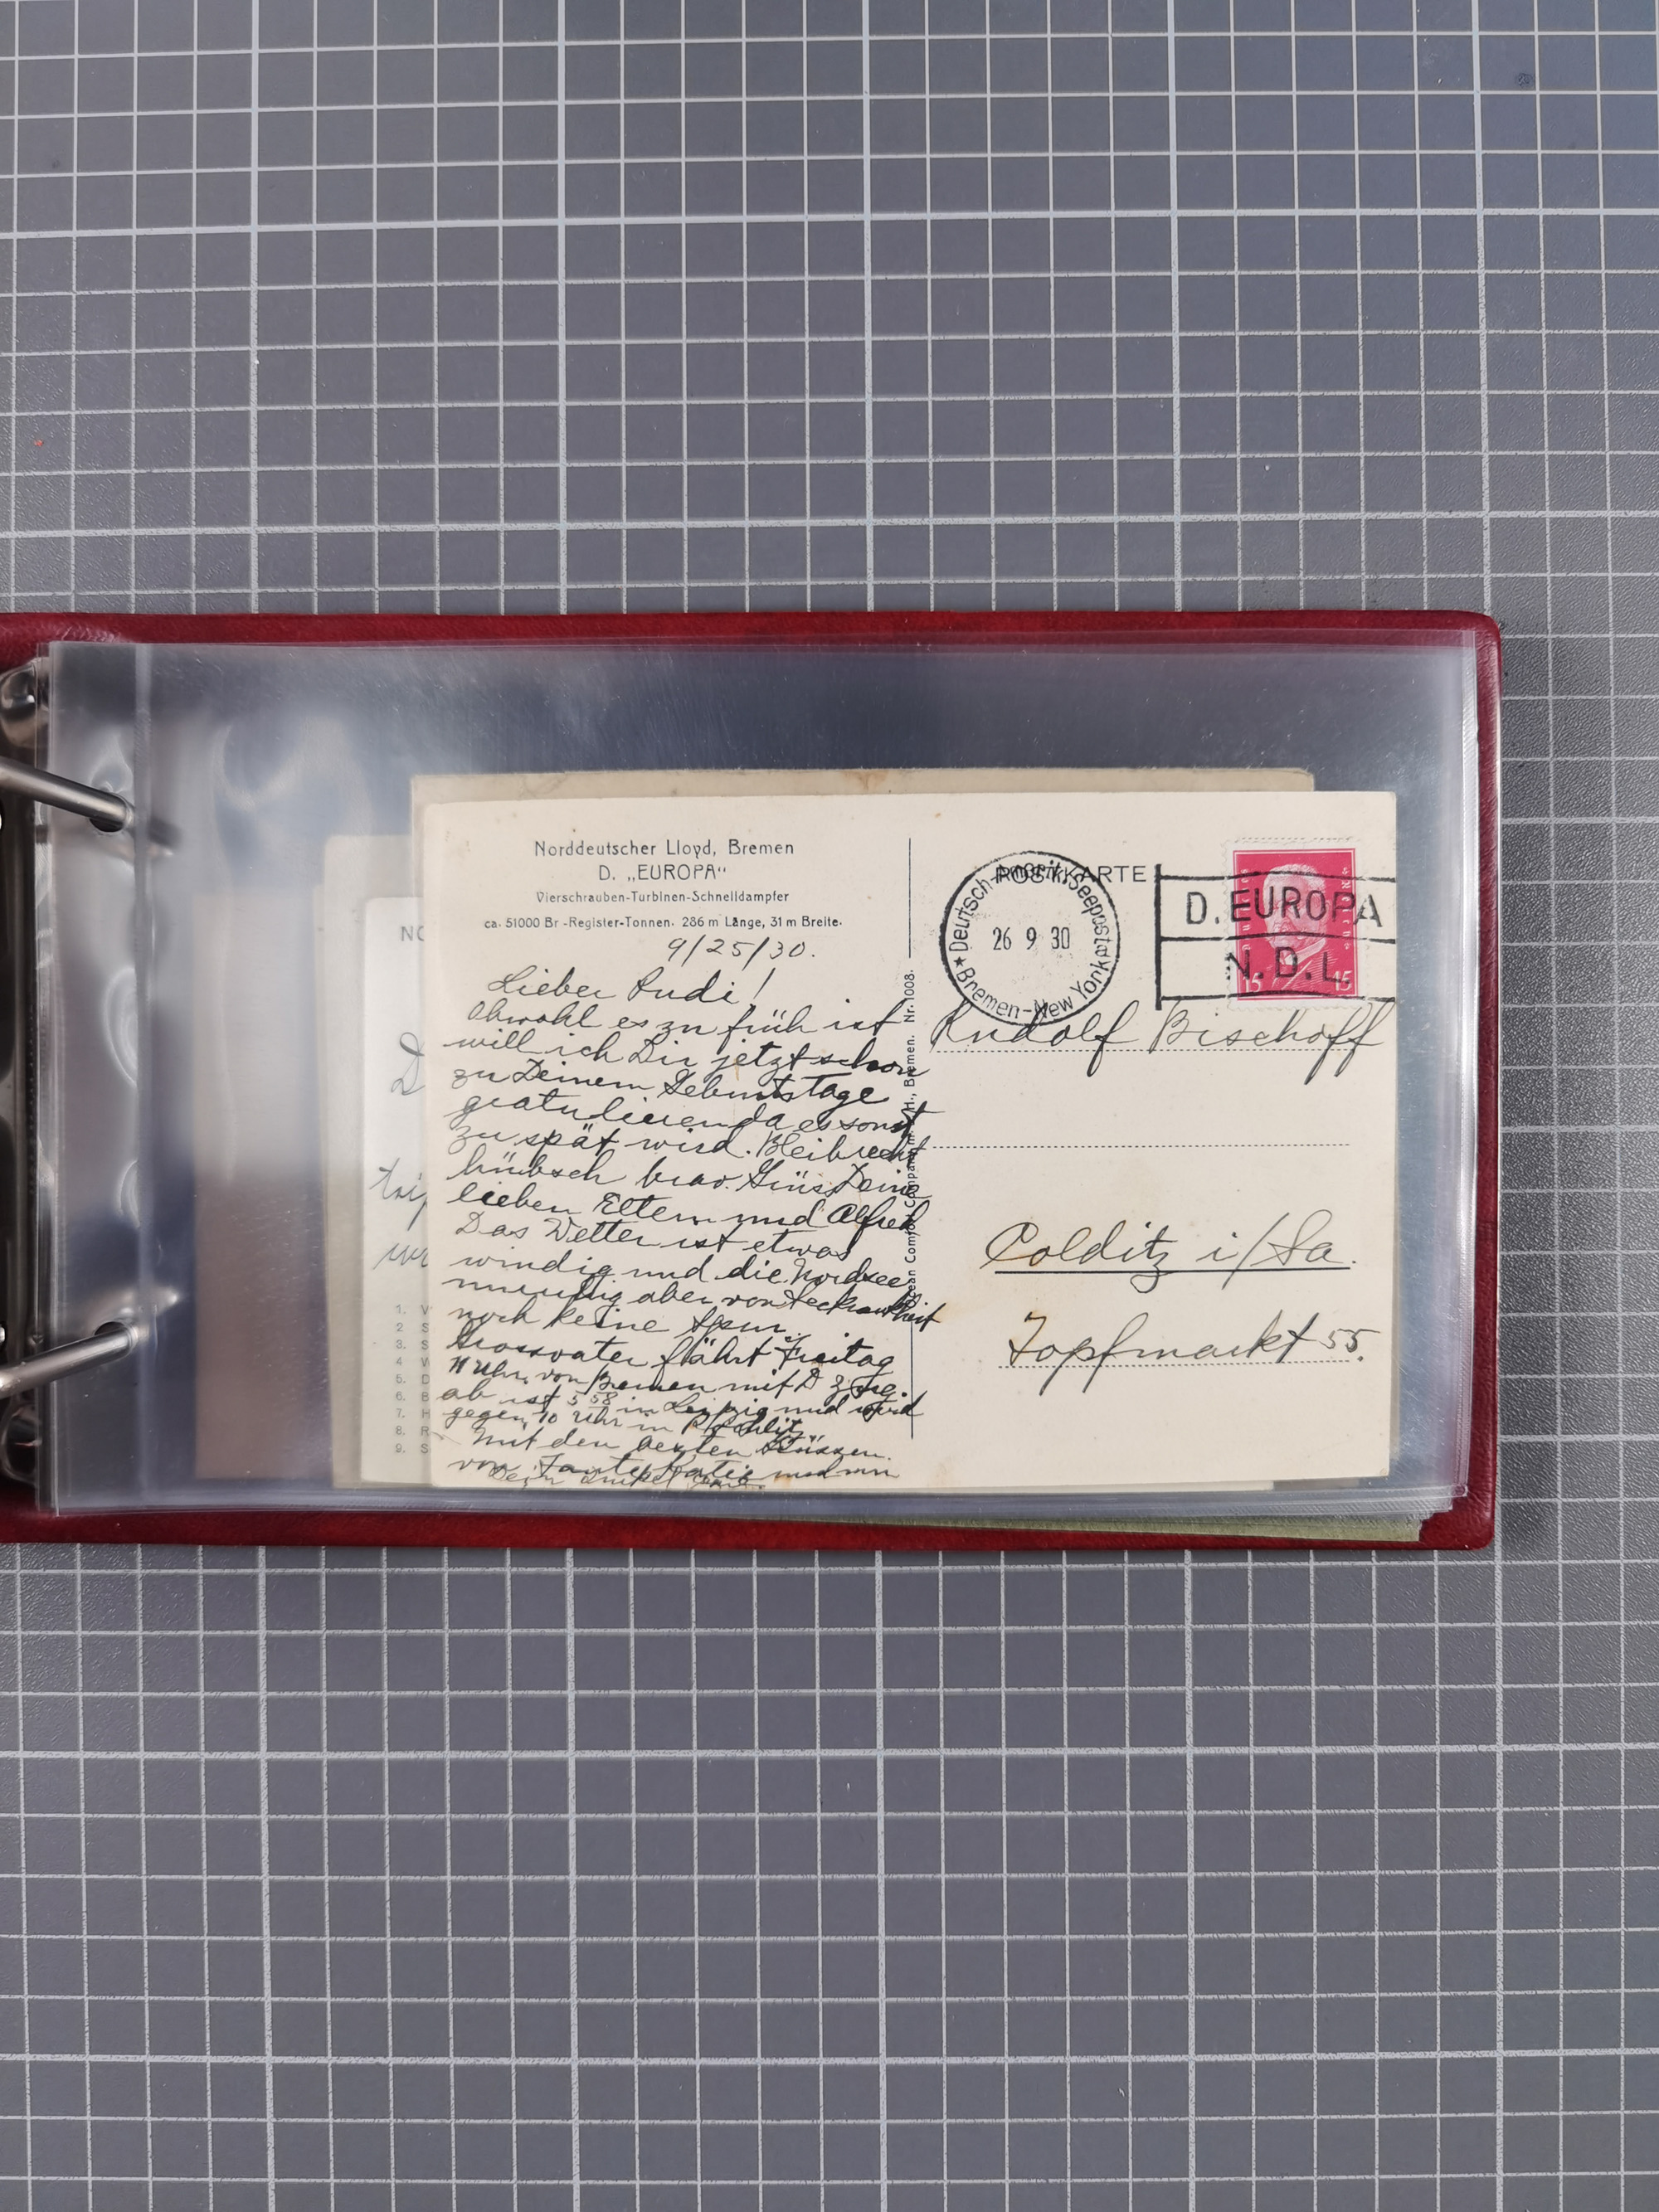 Norddeutscher Lloyd, Bremen
D. „EUROPA“
Vierschrauben-Turbinen-Schnelldampfer
ca. 51000 Br-Register-Tonnen. 286 m Länge, 31 m Breite.
9/25/30.
Lieber Rudi!
Obwohl es zu früh ist
will ich Dir jetzt schon
zu Deinem Geburtstage
gratulieren da es sonst
zu spät wird. Bleib recht
hübsch brav. Grüss Deine
lieben Eltern und Alfred
Das Wetter ist etwas
windig und die Nordsee
unruhig aber von Seekrankheit
noch keine Spur.
Grossvater fährt Freitag
11 Uhr von Bremen mit D Zug.
ab ist 5 58 in Leipzig und wird
gegen 10 Uhr in
Mit den besten Grüssen
von Tante Katie und
Dein Onkel
POSTKARTE
Deutsch-Amerik. Seepost
Bremen-New York
26 9 30
D. EUROPA
N.D.L.
15 15
Rudolf Bischoff
Colditz i/Sa.
Topfmarkt 55.
Bremen. Nr. 1008.
NO
D
1. V
2 S
3. S
4 W
5. D
6. B
7. H
8. R
9. S